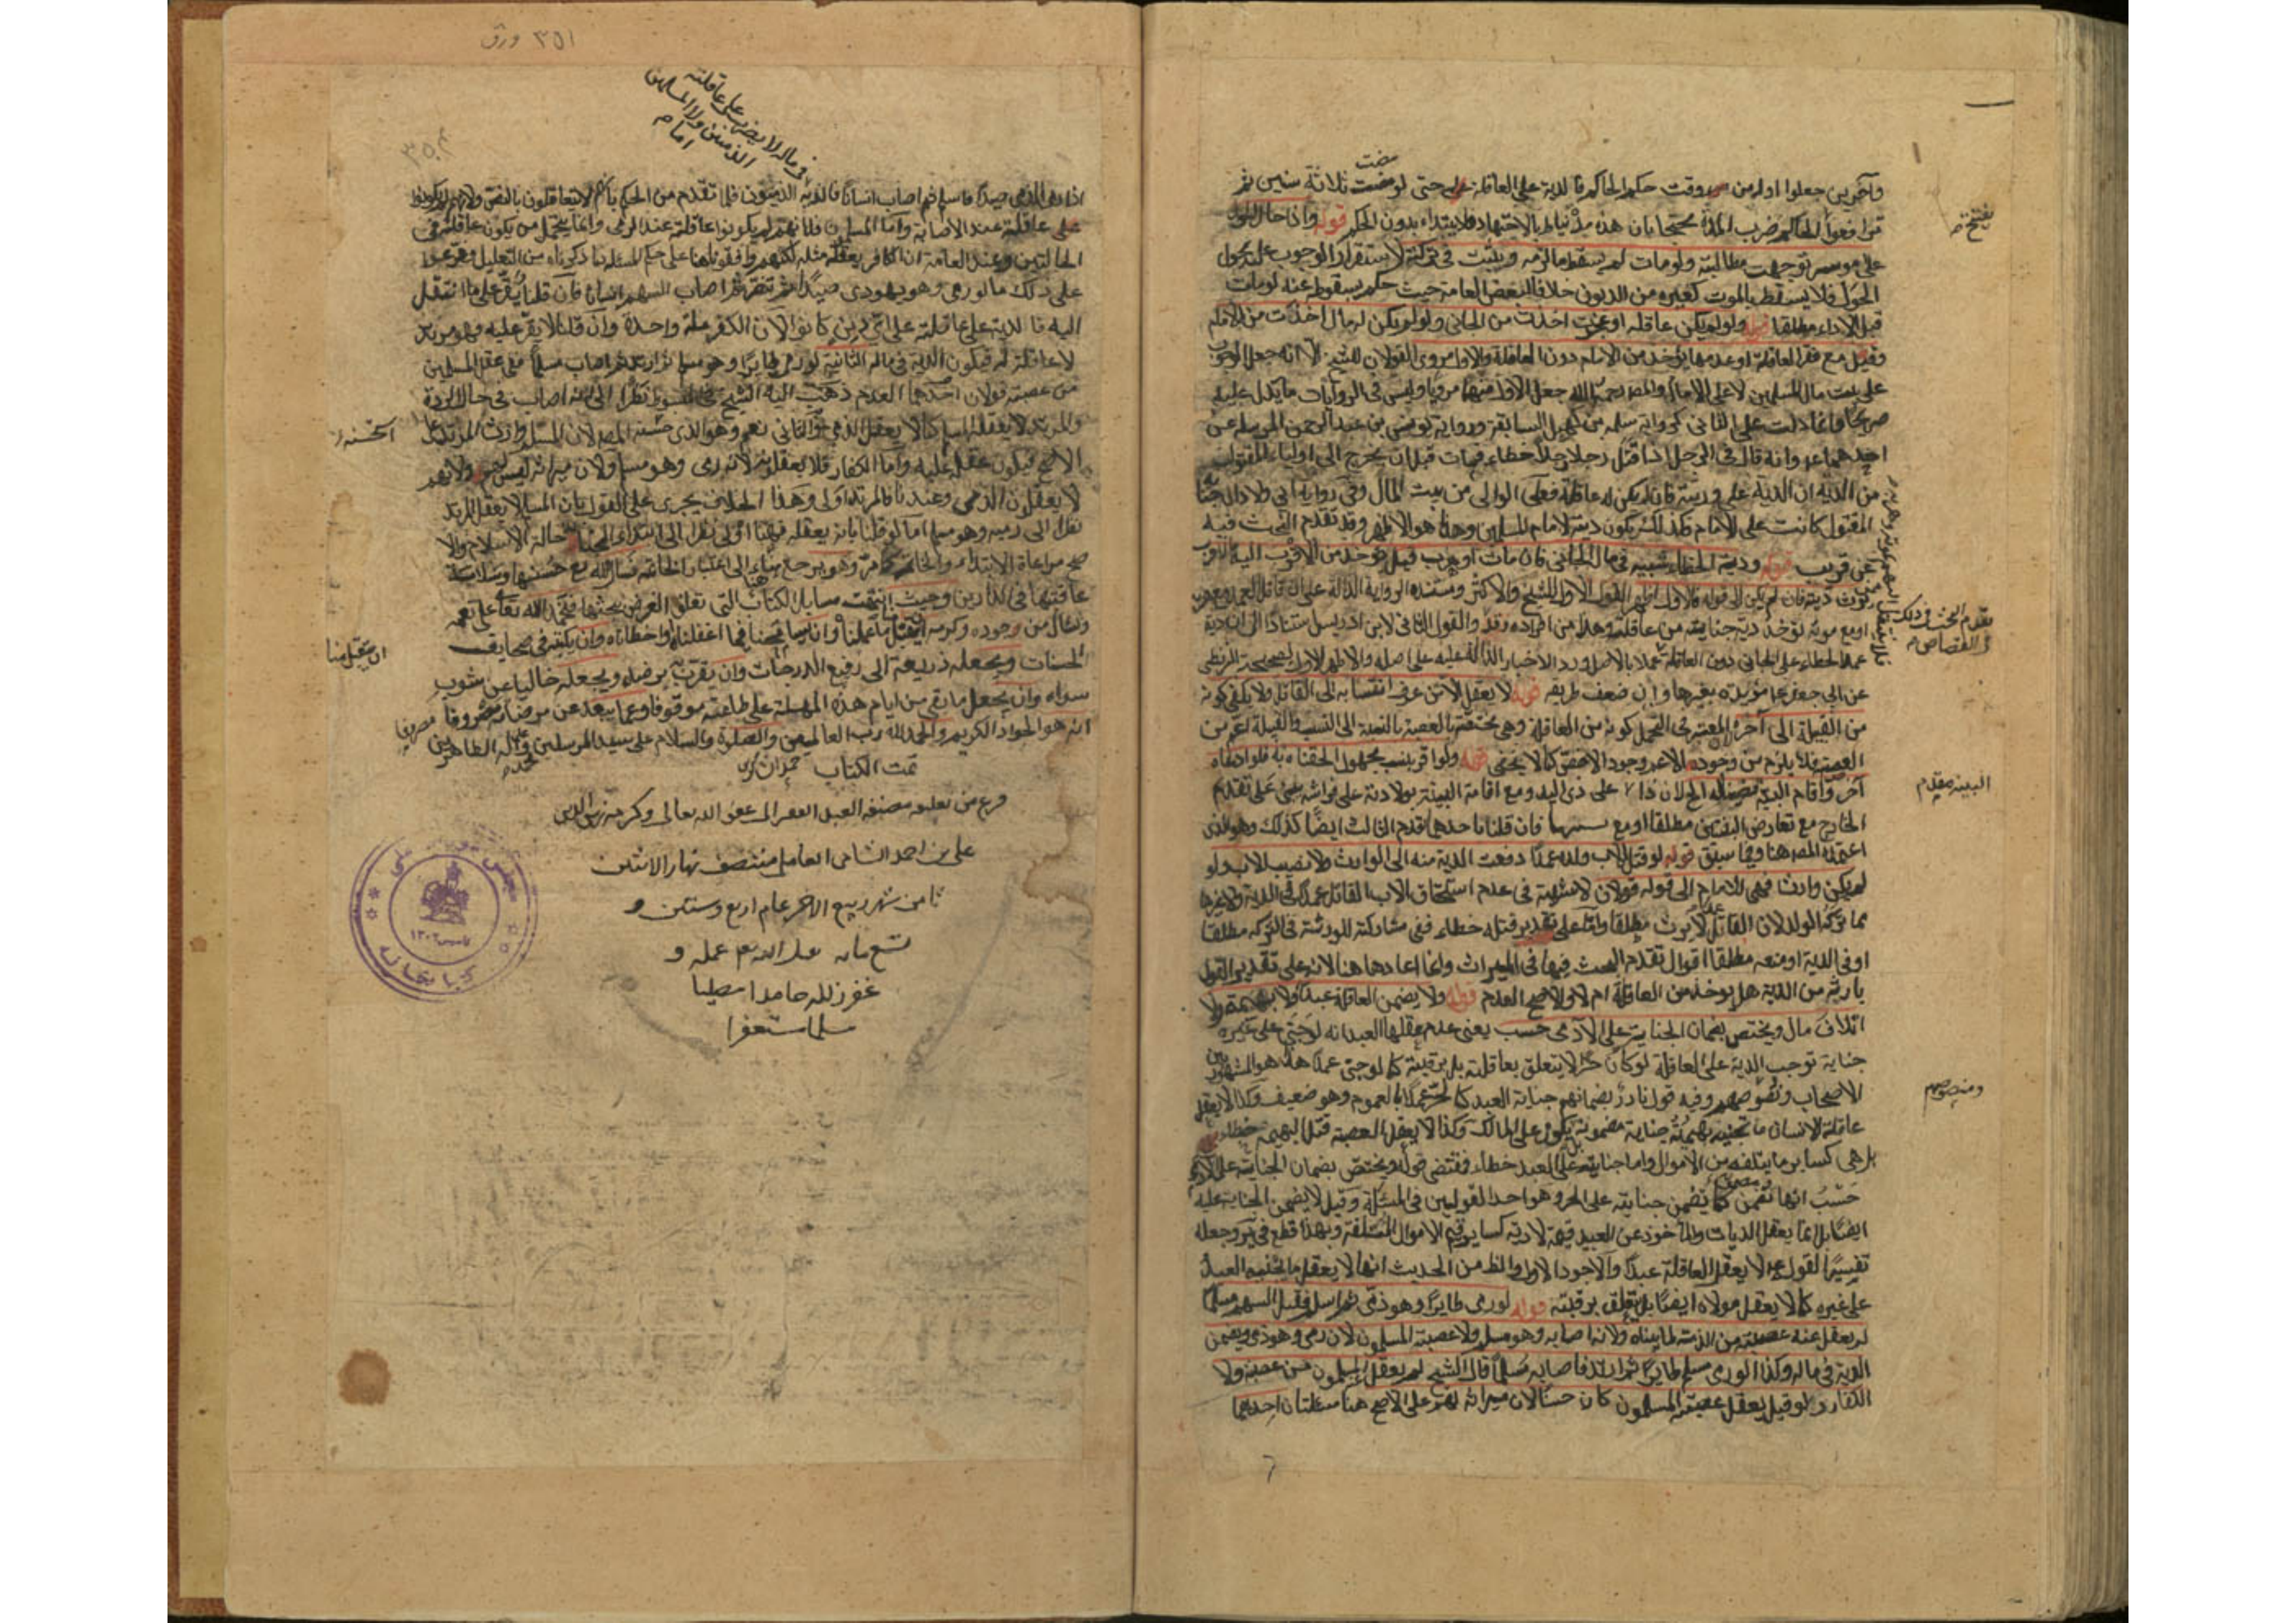 وآخرين جعلوا اوله من وقت حكم الحاكم فالدية على العاقلة حتى لو مضت ثلاثة سنين ثم
ترافعوا الى الحاكم ضرب المدة محتجا بان هذه مدة تناط بالاجتهاد فلا يبتداء بدون الحكم قوله واذا حال الحول
على موسر توجهت مطالبته ولو مات لم يسقط ما لزمه ويثبت في تركته لاستقرار الوجوب عليه بحول
الحول فلا يسقط بالموت كغيره من الديون خلافا لبعض العامة حيث حكم بسقوطه عنه لو مات
قبل الاداء مطلقا قوله ولو لم يكن عاقلة او عجزت اخذت من الجاني ولو لم يكن له مال اخذت من الامام
وقيل مع فقر العاقلة او عدمها يؤخذ من الامام دون العاقلة والاول مروي القولان للشيخ الا انه جعل الوجوب
على بيت مال المسلمين لا على الامام والمصنف رحمه الله جعل الاول منهما مرويا وليس في الروايات ما يدل عليه
صريحا وانما دلت على الثاني كرواية سلمه بن كهيل السابقة ورواية يونس بن عبد الرحمن المرسلة عن
احدهما ع انه قال في الرجل اذا قتل رجلا خطاء فمات قبل ان يخرج الى اولياء المقتول
من الدية ان الدية على ورثته فان لم يكن له عاقلة فعلى الوالي من بيت المال وفي رواية ابي ولاد ان جناية
المقتول كانت على الامام فكذلك يكون ديته لامام المسلمين وهذا هو الاظهر وقد تقدم البحث فيه
عن قريب قوله ودية الخطاء شبيه في مال الجاني فان مات او هرب قيل تؤخذ من الاقرب اليه
عن ابي جعفر ع مؤيدة بغيرها وان ضعف طريقه قوله لا يعقل الا من عرف انتسابه الى القاتل ولا يكفي كونه
من القبيلة الى آخره المعتبر في التحمل كونه من العاقلة وهي مختصة بالعصبة بالنسبة الى النسب والقبيلة اعم من
العصبة فلا يلزم من وجوده الاعم وجود الاخص كما لا يخفى قوله ولو اقر بنسب مجهول الحقناه به فلو ادعاه
آخر واقام البينة قضينا له
الخارج مع تعارض البينتين مطلقا او مع فان قلنا باحدهما قدم الثالث ايضا كذلك وهو الذي
اعتمده المصنف هنا وفيما سبق قوله لو قتل الاب ولده عمدا دفعت الدية منه الى الوارث ولا نصيب للاب ولو
لم يكن وارث فهي للامام الى قوله قولان لا شبهة في عدم استحقاق الاب القاتل عمدا في الدية ولا غيرها
مما تركه الولد لان القاتل عمدا لا يرث مطلقا واما على تقدير قتله خطاء ففي مشاركته للورثة في التركة مطلقا
او في الدية او منعه مطلقا اقوال تقدم البحث فيها في الميراث وانما اعادها هنا لانه على تقدير القول
بارثه من الدية هل يوخذ من العاقلة ام لا والاصح العدم قوله ولا يضمن العاقلة عبدا ولا بهيمة ولا
اتلاف مال ويختص بضمان الجناية على الآدمي حسب يعني عدم عقلها العبد انه لو جنى على غيره
جناية توجب الدية على العاقلة لو كان حرا لا يتعلق بعاقلته بل برقبته كما لو جنى عمدا هذا هو المشهور بين
الاصحاب ونصوصهم وفيه قول نادر بضمانهم جناية العبد كالحر عملا بالعموم وهو ضعيف وكذا لا يعقل
عاقلة الانسان ما تجنيه بهيمته جناية مضمونة بل يكون على المالك وكذا لا يعقل العصبة قتل البهيمة خطاء
بل هي كساير ما يتلفه من الاموال واما جنايته على العبد خطاء فمقتضى قوله ويختص بضمان الجناية على الآدمي
حسب انها تضمن كما تضمن جنايته على الحر وهو احد القولين في المسئلة وقيل لا يضمن الجناية عليه
ايضا بل انما يعقل الديات والماخوذ عن العبيد قيمة لا دية كساير قيم الاموال المتلفة وبهذا قطع في ير وجعله
تفسيرا لقوله ع لا يعقل العاقلة عبدا والاجود الاول والظ من الحديث انها لا يعقل ما يجنيه العبد
على غيره كما لا يعقل مولاه ايضا بل يتعلق برقبته قوله لو رمى طايرا وهو ذمي ثم اسلم فقتل السهم مسلما
لم يعقل عنه عصبته من الذمة لما بيناه ولانه اصابه وهو مسلم ولا عصبته المسلمون لانه رمى وهو ذمي ويضمن
الدية في ماله وكذا لو رمى مسلم طايرا ثم ارتد فاصابه مسلما قال الشيخ لم يعقل المسلمون من عصبته ولا
الكفار ولو قيل يعقل عصبته المسلمون كان حسنا لان ميراثه لهم على الاصح هنا مسئلتان احديهما
البينة مقدم
ونصوصهم
٣٥١ ورق
في ماله لا يضرب على عاقلته
الذميين ولا المسلمين
امام
اذا رمى الذمي صيدا فاسلم ثم اصاب انسانا فالدية الذميون فلما تقدم من الحكم بانهم لا يتعاقلون بالنص ولانهم لم يكونوا
على عاقلته عند الاصابة واما المسلمون فلانهم لم يكونوا عاقلته عند الرمي وانما يتحمل من يكون عاقلته في
الحالتين وعند العامة ان الكافر يعقله مثله لكنهم وافقونا هنا على حكم المسئلة لما ذكرناه من التعليل وفرعوا
على ذلك ما لو رمى وهو يهودي صيدا ثم تنصر ثم اصاب السهم انسانا فان قلنا يقر على ما انتقل
اليه فالدية على عاقلته على اي دين كانوا لان الكفر ملة واحدة وان قلنا لا يقر عليه فهو مرتد
لا عاقلة له فيكون الدية في ماله الثانية لو رمى طايرا وهو مسلم ثم ارتد ثم اصاب مسلما ففي عقل المسلمين
من عصبته قولان احدهما العدم ذهب اليه الشيخ في المبسوط نظرا الى انه اصاب في حال الردة
والمرتد لا يعقله المسلم كما لا يعقل الذمي والثاني نعم وهو الذي حسنه المصنف لان المسلم وارث المرتد على
الاصح فيكون عقله عليه واما الكفار فلا يعقلونه لانه رمى وهو مسلم ولان ميراثه ليس لهم ولانهم
لا يعقلون الذمي وعندنا فالمرتد اولى وهذا الخلاف يجري على القول بان المسلم لا يعقل المرتد
نظرا الى رميه وهو مسلم اما لو قلنا بانه يعقله فهنا اولى نظرا الى ابتداء الجناية حالة الاسلام والا
صح مراعاة الابتداء والخاتمة كما مر وهو يرجع هنا الى اعتبار الخاتمة نسال الله تع حسنها وسلامة
عاقبتها في الدارين وحيث انتهت مسايل الكتاب التي تعلق الغرض ببحثها فنحمد الله تعالى على نعمه
ونسال من وجوده وكرمه ان يتقبل منا ما عملنا وان يسامحنا فيما اغفلناه واخطاناه وان يكتبه في صحايف
الحسنات ويجعله ذريعة الى رفيع الدرجات وان يقرن به برضاه ويجعله خاليا عن شوب
سواه وان يجعل ما بقي من ايام هذه المهلة على طاعته موقوفا وعما يبعد عن مرضاته مصروفا
انه هو الجواد الكريم والحمد لله رب العالمين والصلوة والسلام على سيد المرسلين محمد وعلى آله الطاهرين
تمت الكتاب
فرغ من تعليقه مصنفه العبد الفقير الى عفو الله تعالى وكرمه زين الدين
علي بن احمد الشامي العاملي منتصف نهار الاثنين
ثامن شهر ربيع الاخر عام اربع وستين و
تسع مايه تقبل الله عمله و
غفر زلله حامدا مصليا
مسلما مستغفرا
ان يتقبل منا
تاسيس ١٣٠٢
كتابخانه